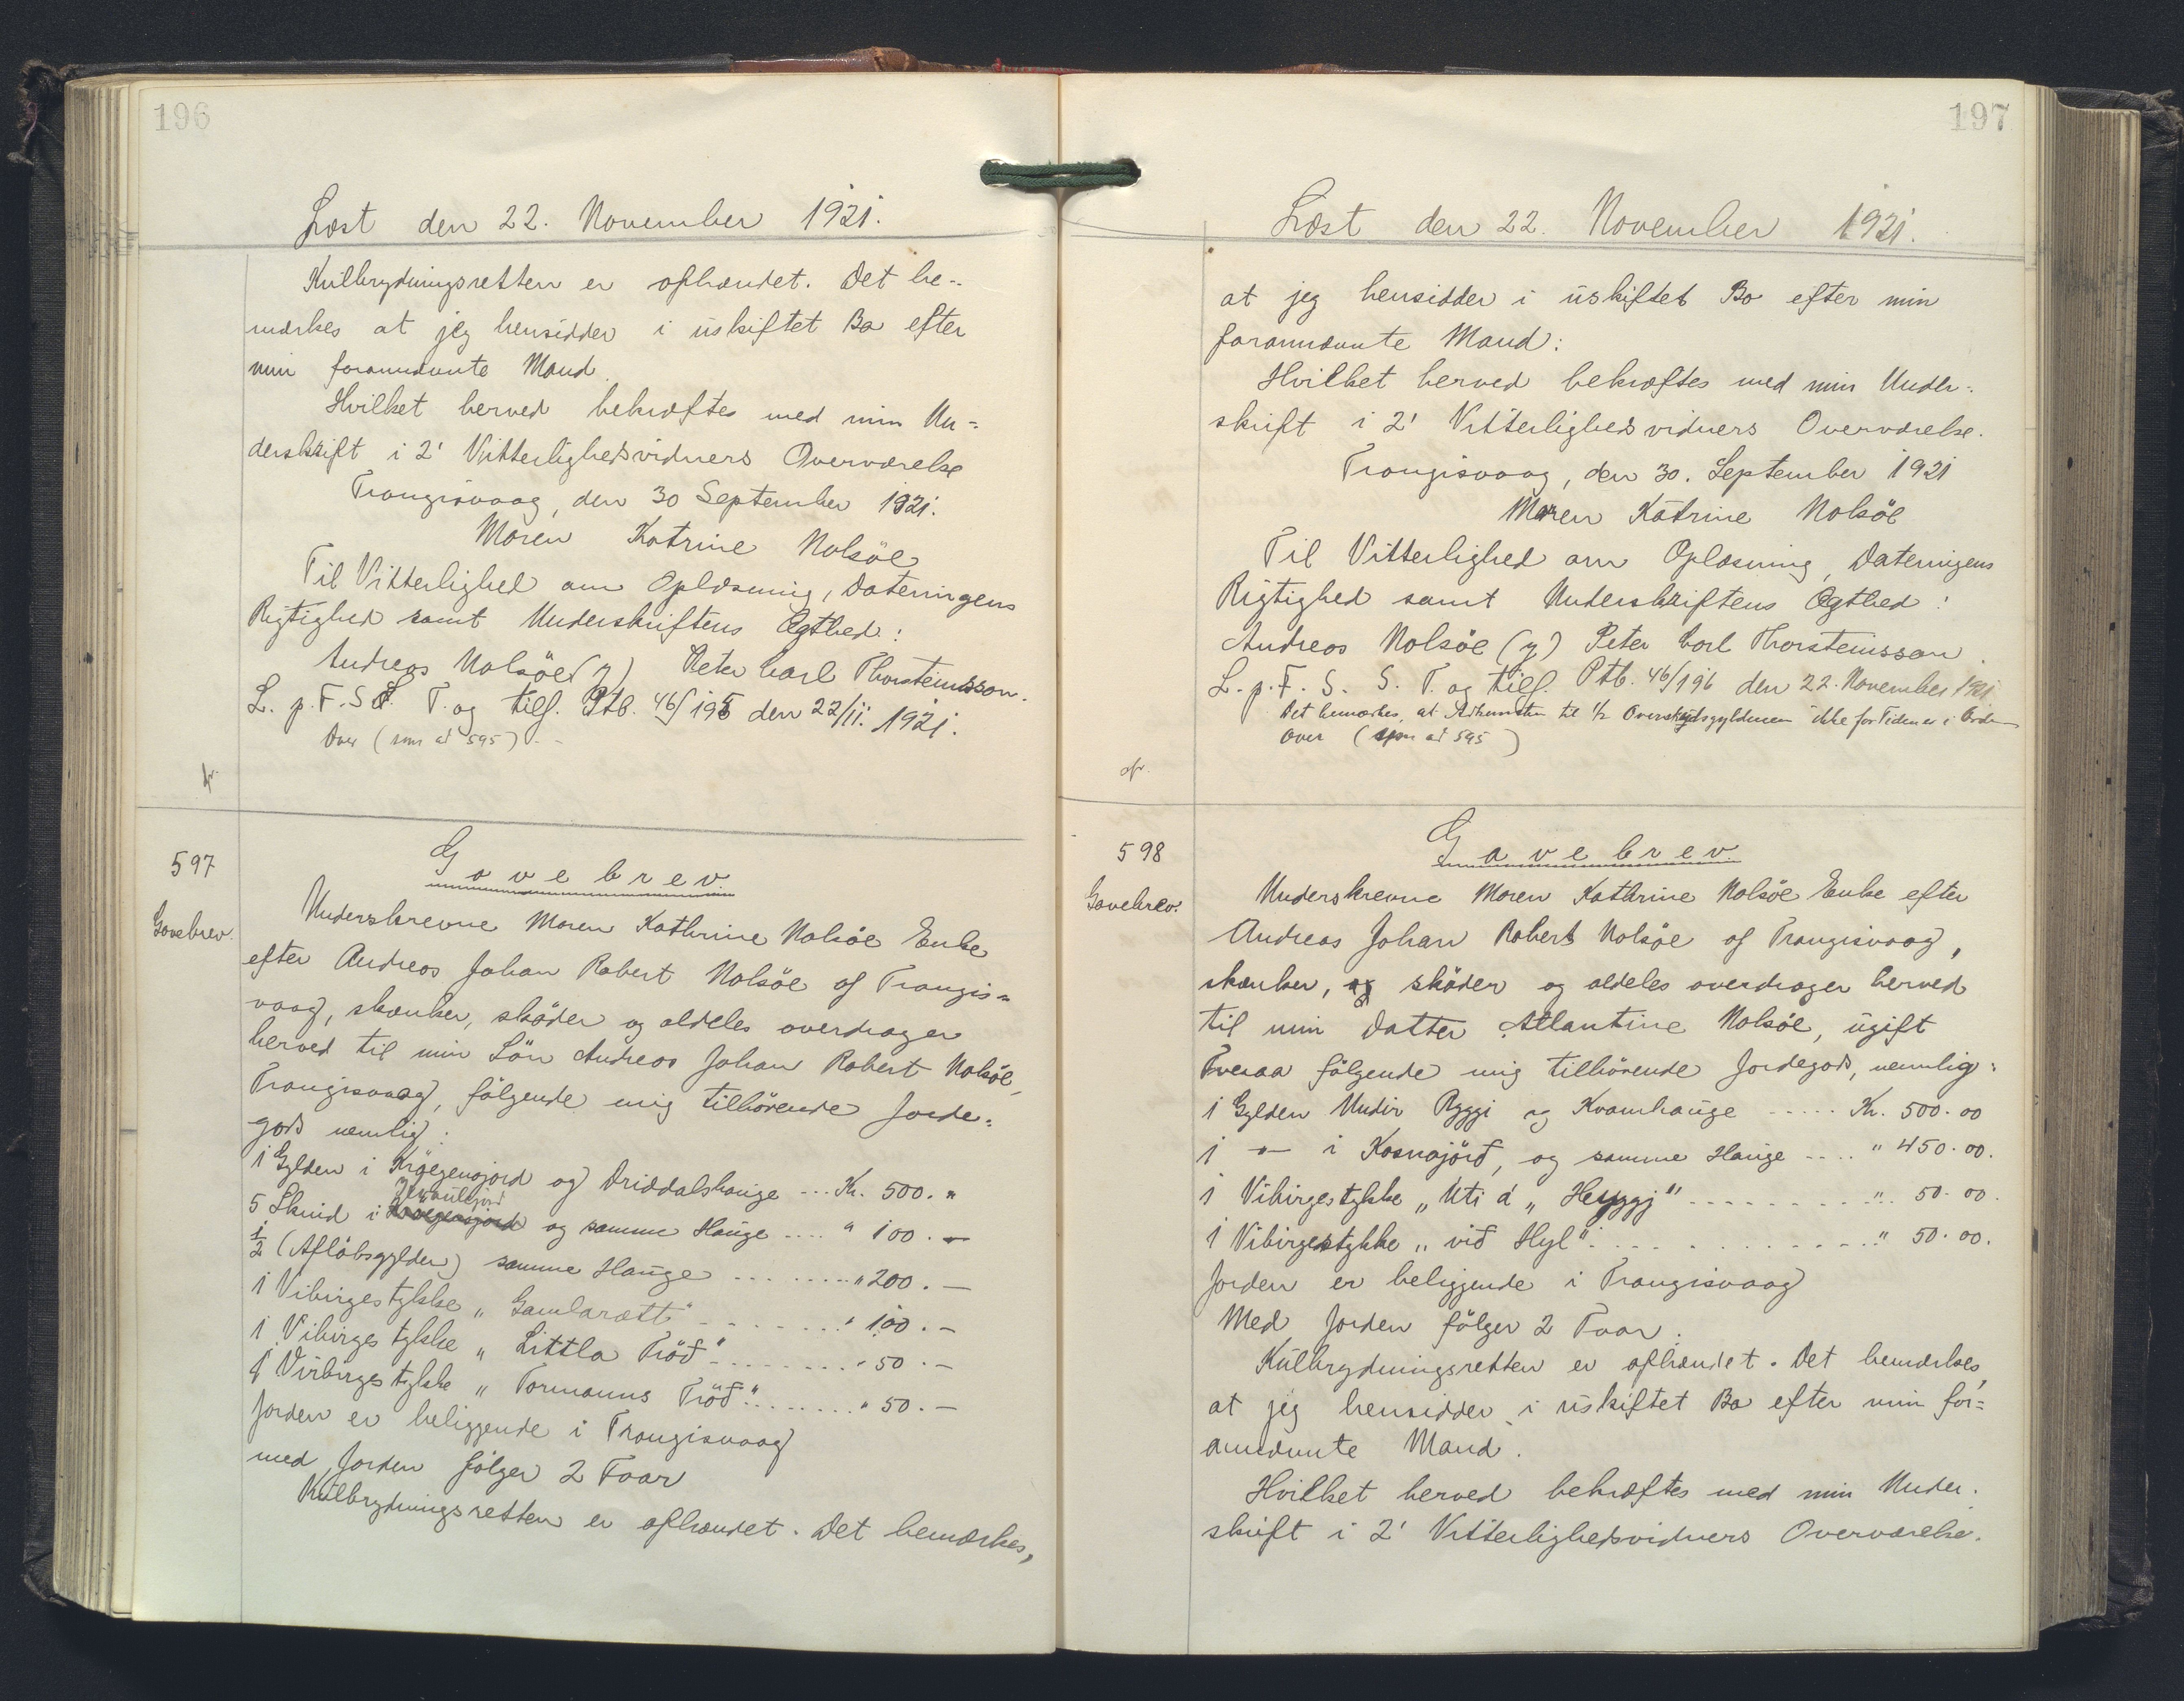 196
Læst den 22. November 1921.
Kulbrydningsretten er afhændet. Det be-
mærkes at jeg hensidder i uskiftet Bo efter
min forannævnte Mand.
Hvilket herved bekræftes med min Un=
derskrift i 2' Vitterlighedsvidners Overværelse
Trangisvaag, den 30 September 1921.
Maren Katrine Nolsöe
Til Vitterlighed om Oplæsning, Dateringens
Rigtighed samt Underskriftens Ægthed:
Andreas Nolsöe (y) Peter Carl Thorsteinsson.
L. p. F. S. S. T. og tilf. Ptb. 46/195 den 22/11. 1921.
Over (som ad 595)
597
Gavebrev.
Gavebrev
Underskrevne Maren Kathrine Nolsöe Enke
efter Andreas Johan Robert Nolsöe af Trangis=
vaag, skænker, sköder og aldeles overdrager
herved til min Sön Andreas Johan Robert Nolsöe,
Trangisvaag, fölgende mig tilhörende Jorde=
gods nemlig:
1 Gylden i Krögenojord og Driddalshauge ... Kr. 500. "
5 Skind i og samme Hauge .... " 100. —
1/2 (Aflöbsgylden) samme Hauge ........ " 200. —
1 Vibirgestykke „Gamlarætt" ........ " 100. —
1 Vibirgestykke „Littla Tröð" ........ " 50. —
1 Virbirgestykke „Tormanns Tröð" ........ " 50. —
Jorden er beliggende i Trangisvaag
med Jorden fölger 2 Faar
Kulbrydningsretten er afhændet. Det bemærkes,
197
Læst den 22. November 1921.
at jeg hensidder i uskiftet Bo efter min
forannævnte Mand:
Hvilket herved bekræftes med min Under=
skrift i 2' Vitterlighedsvidners Overværelse.
Trangisvaag, den 30. September 1921
Maren Katrine Nolsöe
Til Vitterlighed om Oplæsning, Dateringens
Rigtighed samt Underskriftens Ægthed:
Andreas Nolsöe (y) Peter Carl Thorsteinsson.
L. p. F. S. S. T. og tilf. Ptb. 46/196 den 22. November 1921
Det bemærkes, at Adkomsten til 1/2 Overskudsgyldenen ikke for Tiden er i Orden
Over (som ad 595)
598
Gavebrev.
Gavebrev.
Underskrevne Maren Kathrine Nolsöe Enke efter
Andreas Johan Robert Nolsöe af Trangisvaag,
skænker, og sköder og aldeles overdrager herved
til min Datter Atlantine Nolsöe, ugift
Tveraa fölgende mig tilhörende Jordegods, nemlig:
1 Gylden Undir Ryggi og Kvamhauge ..... Kr. 500.00
1 —"— i Kosnajörð, og samme Hauge .... " 450.00.
1 Vibirgestykke „Uti á „Heyggj" ......... " 50.00.
1 Vibirgestykke „við Hyl" ............. " 50.00.
Jorden er beliggende i Trangisvaag
Med Jorden fölger 2 Faar.
Kulbrydningsretten er afhændet. Det bemærkes,
at jeg hensidder i uskiftet Bo efter min for=
annævnte Mand.
Hvilket herved bekræftes med min Under.
skrift i 2' Vitterlighedsvidners Overværelse.